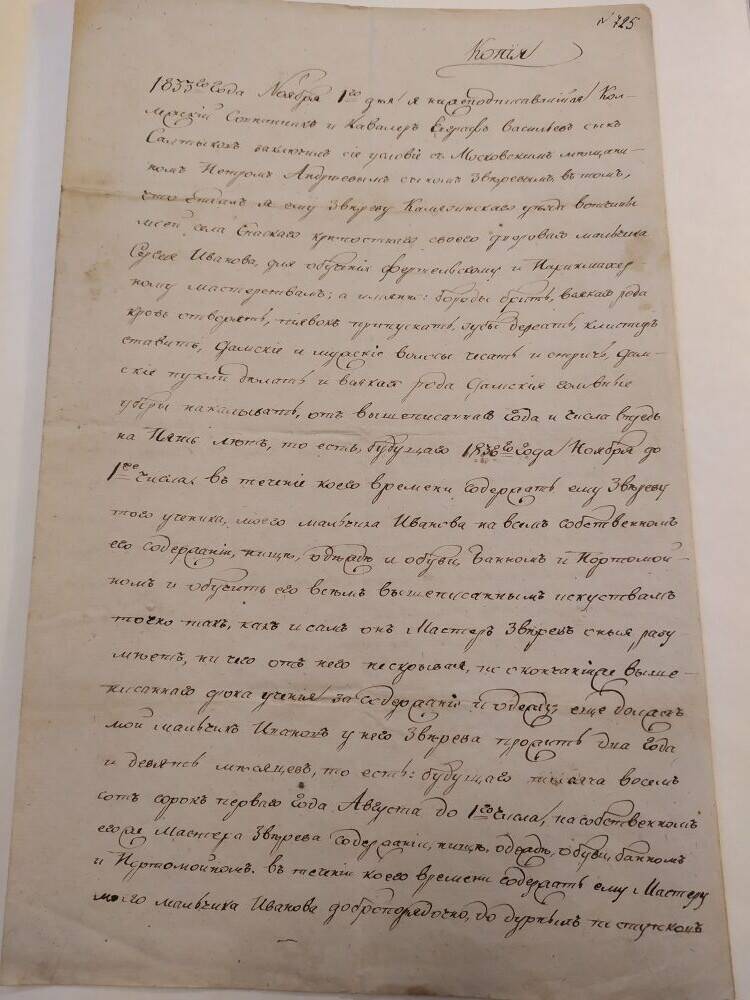 № 725
Копія
1833го года Ноября 1го дня я нижеподписавшійся Кол-
лежскій Совѣтникъ и Кавалеръ Евграфъ Васильевъ сынъ
Салтыковъ заключилъ сіе условіе съ Московскимъ мѣщани-
номъ Петромъ Андреевымъ сыномъ Звѣревымъ въ томъ,
что отдалъ я ему Звѣреву Калязинскаго уѣзда вотчины
моей, села Спаскаго крепостнаго своего двороваго мальчика
Сергея Иванова, для обученія фершельскому и Парикмахер-
ному мастерствамъ; а имянно: бороды брить, всякаго рода
кровь отворять, піявокъ припускать, зубы дергать, клистиръ
ставить, Дамскіе и мужскіе волосы чесать и стричь, Дам-
скіе пукли дѣлать и всякаго рода Дамскія головные
уборы накалывать, отъ вышеписаннаго года и числа впредь
на Пять лѣтъ, то есть, будущаго 1838го года Ноября до
1го числа, въ теченіе коего времени содержать ему Звѣреву
того ученика, моего мальчика Иванова на всемъ собственномъ
его содержаніи, пищѣ, одеждѣ и обуви, Банномъ и Портомой-
номъ и обучить его всѣмъ вышеписаннымъ искуствамъ
точно такъ, какъ и самъ онъ Мастеръ Звѣревъ оныя разу-
мѣетъ, ни чего отъ него нескрывая, по скончаніи же выше-
писаннаго срока ученія за содержаніе и одежду еще долженъ
мой мальчикъ Ивановъ у него Звѣрева прожить два года
и девять мѣсяцевъ, то есть: будущаго тысяча восемь
сотъ сорокъ перваго года Августа до 1го числа, на собственномъ
его же Мастера Звѣрева содержаніи, пищѣ, одеждѣ, обуви, банномъ
и Портомойномъ. въ теченіи коего времени содержать ему Мастеру
моего мальчика Иванова добропорядочно, до дурныхъ поступковъ